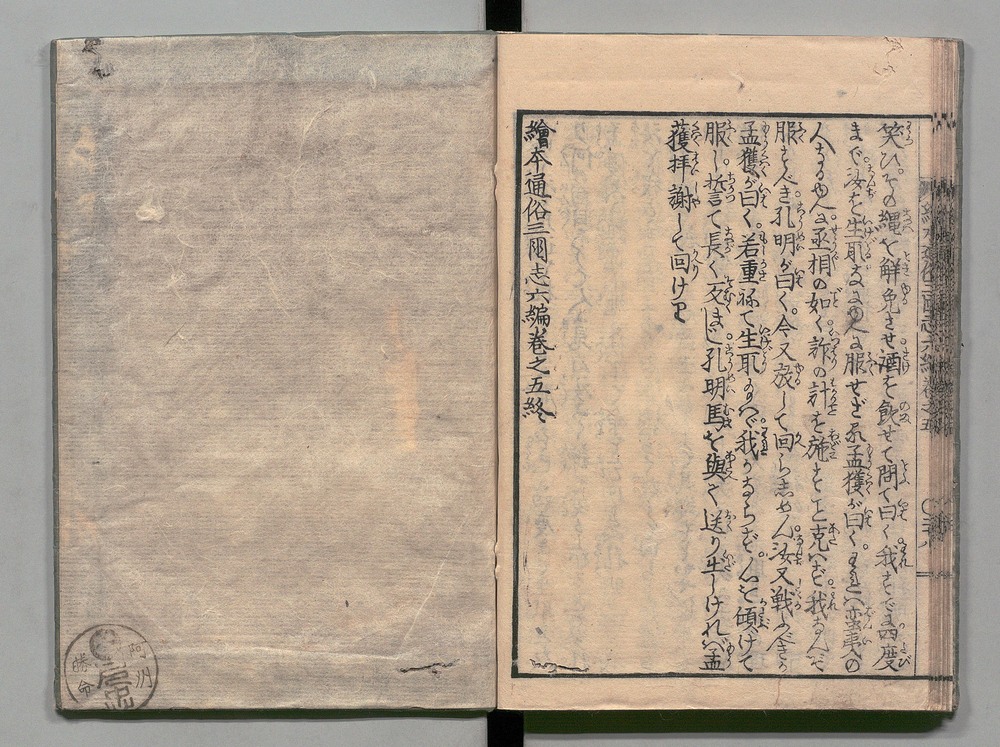 笑ひその縄を解免させ酒を飲せて問て曰く我すでに四度
まで汝を生取なほ心に服せざるか孟獲が曰くそれハ蛮夷の
人なれ𪜈丞相の如く詐の計を施すことを克ハず我なんぞ
服すべき孔明が曰く今又放して回らしめん汝又戦ふべきか
孟獲が曰く若重ねて生取玉ハヾ我かならず心を傾けて
服し誓て長く反まじ孔明馬を與て送り出しけれハ孟
獲拝謝して回けり
繪本通俗三國志六編巻之五終
阿州
勝命